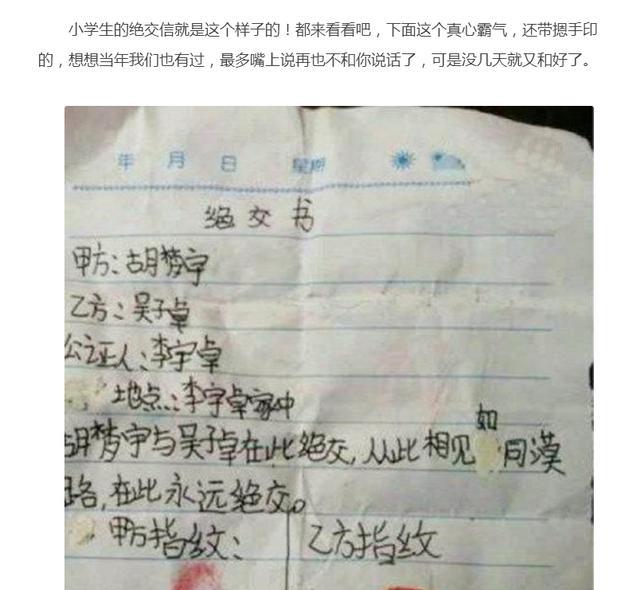 小学生的绝交信就是这个样子的！都来看看吧，下面这个真心霸气，还带摁手印
的，想想当年我们也有过，最多嘴上说再也不和你说话了，可是没几天就又和好了。
年 月 日 星期
绝交书
甲方：胡梦宇
乙方：吴子卓
公证人：李宇卓
地点：李宇卓家中
胡梦宇与吴子卓在此绝交，从此相见如同漠
路，在此永远绝交。
甲方指纹： 乙方指纹